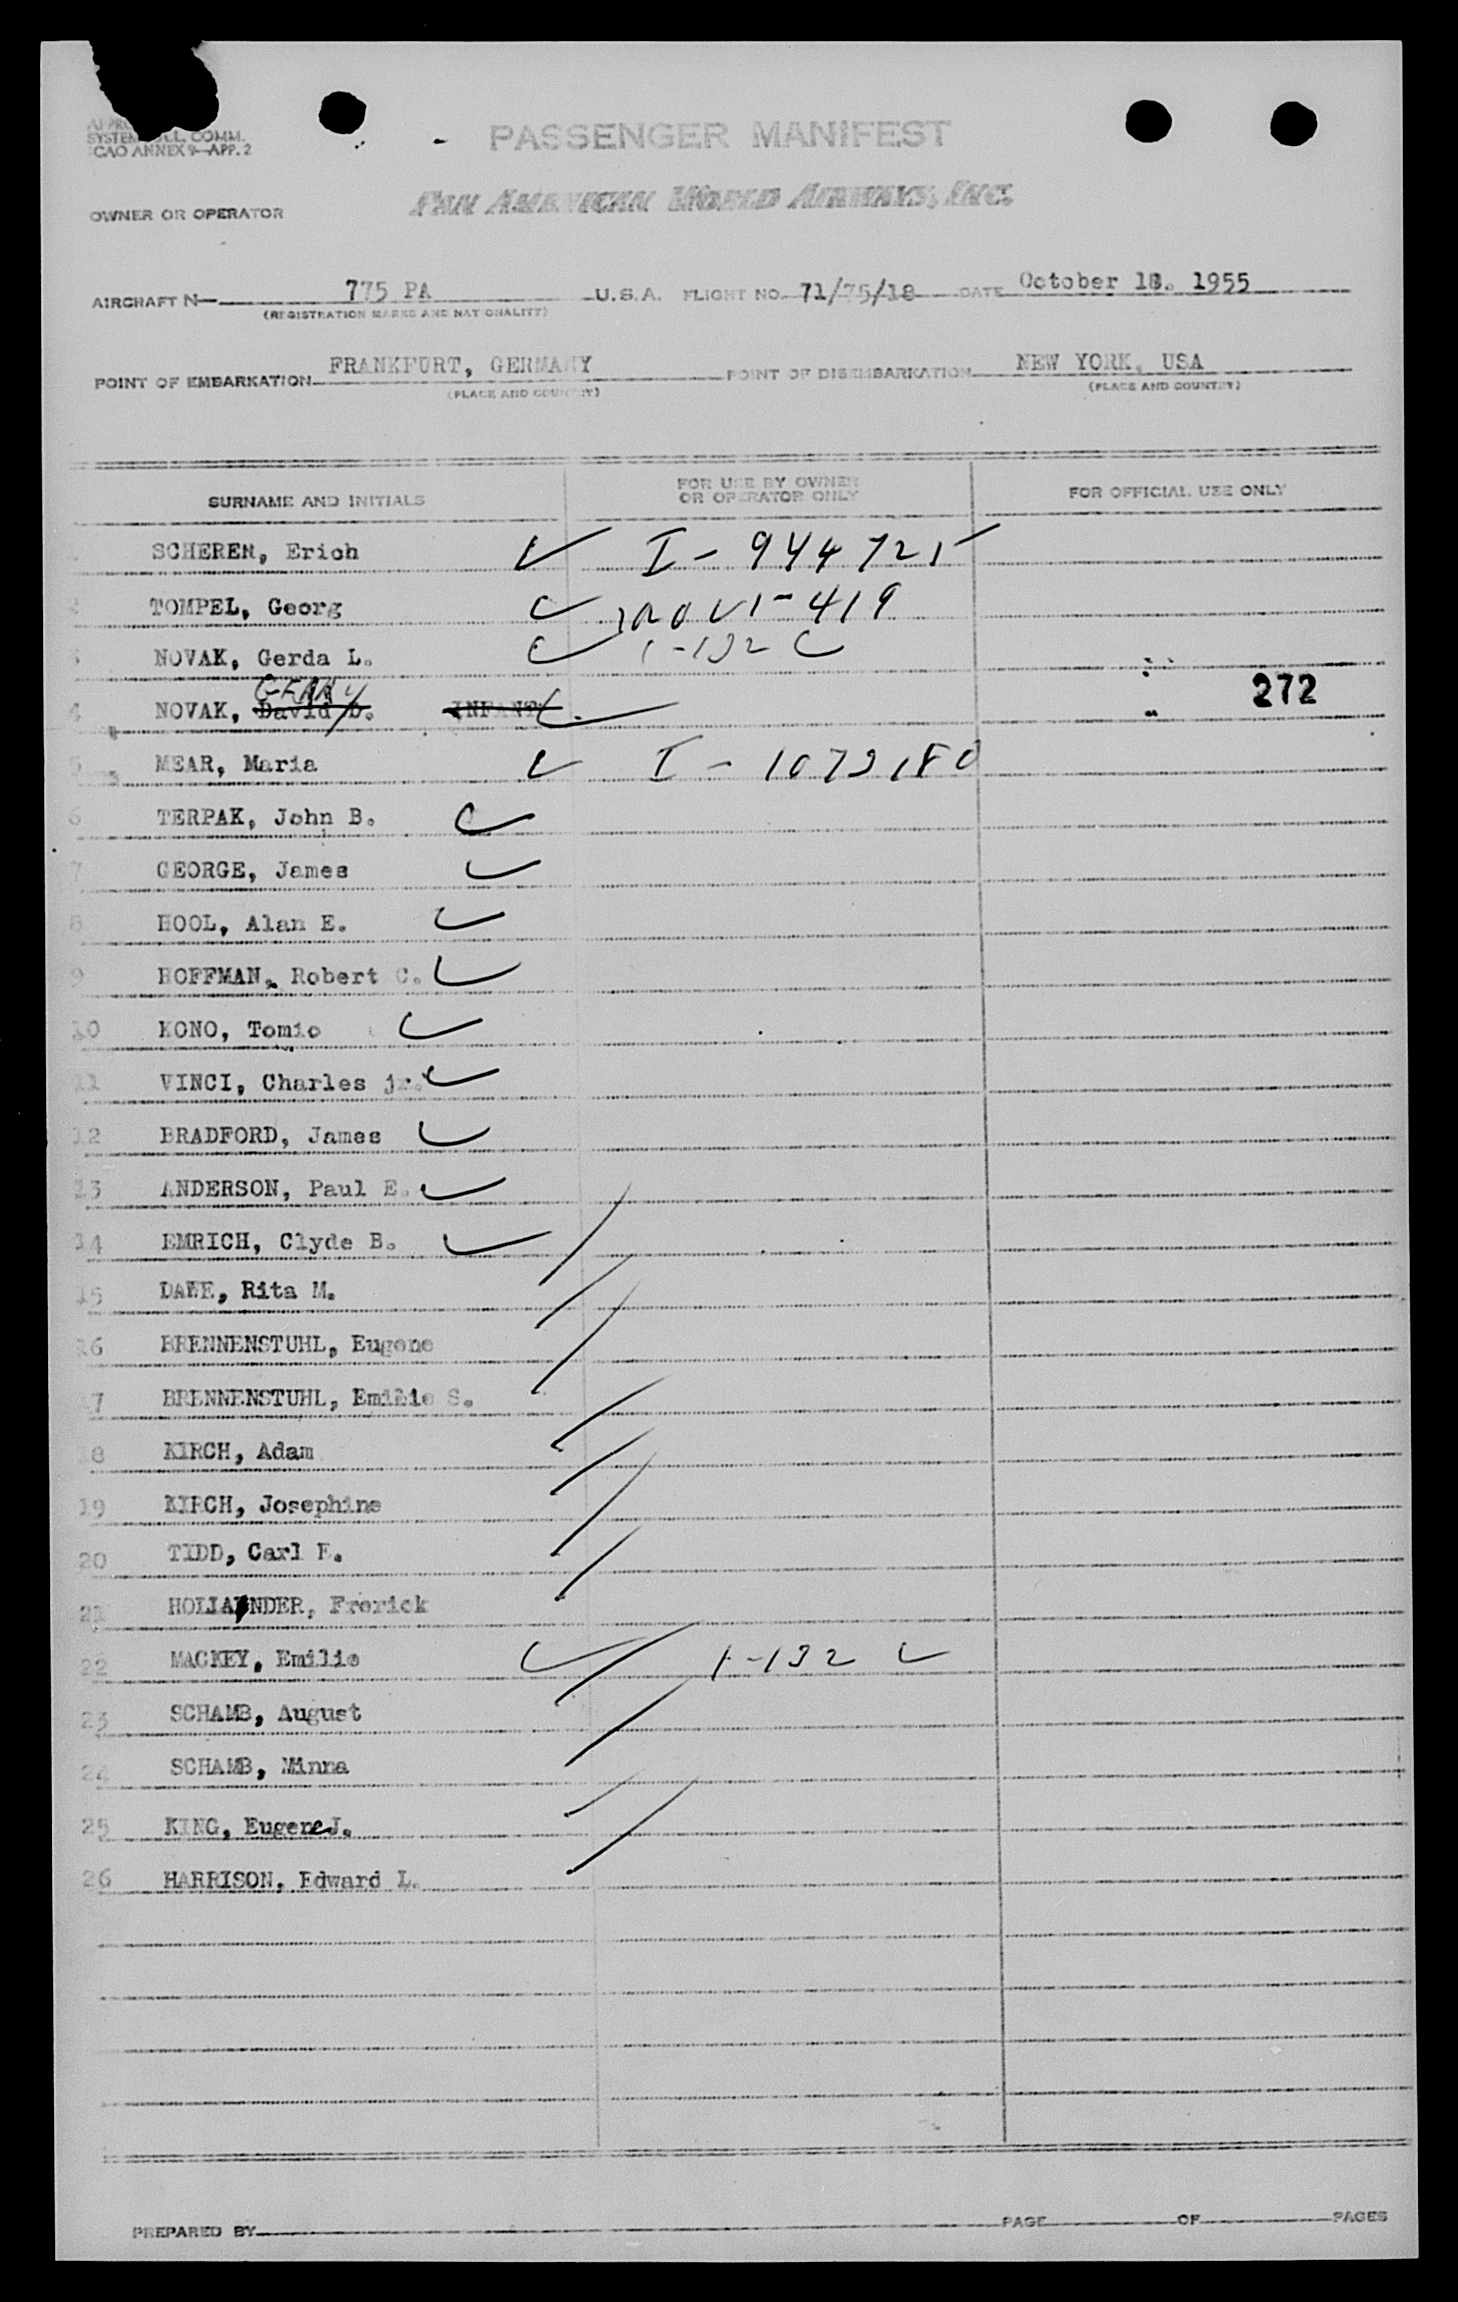 SYSTEM COMM.
ICAO ANNEX 9—APP. 2
PASSENGER MANIFEST
PAN AMERICAN WORLD AIRWAYS, INC.
OWNER OR OPERATOR
AIRCRAFT N 775 PA U.S.A. FLIGHT NO. 71/75/18 DATE October 18. 1955
(REGISTRATION MARKS AND NATIONALITY)
POINT OF EMBARKATION FRANKFURT, GERMANY POINT OF DISEMBARKATION NEW YORK, USA
(PLACE AND COUNTRY) (PLACE AND COUNTRY)
SURNAME AND INITIALS FOR USE BY OWNER OR OPERATOR ONLY FOR OFFICIAL USE ONLY
SCHERER, Erich I-944725
2 TOMPEL, Georg 419
3 NOVAK, Gerda L. 1-132
GERRY
4 NOVAK, David D. INFANT 272
5 MEAR, Maria I-1073180
6 TERPAK, John B.
7 GEORGE, James
8 HOOL, Alan E.
9 HOFFMAN, Robert C.
10 KONO, Tomio
11 VINCI, Charles jr.
12 BRADFORD, James
13 ANDERSON, Paul E.
14 EMRICH, Clyde B.
15 Rita M.
16 BRENNENSTUHL, Eugene
17 BRENNENSTUHL, Emilie S.
18 KIRCH, Adam
19 KIRCH, Josephine
20 TIDD, Carl F.
21 HOLLAENDER, Frerick
22 MACKEY, Emilie 1-132
23 SCHAMB, August
24 SCHAMB, Minna
25 KING, Eugene J.
26 HARRISON, Edward L.
PREPARED BY PAGE OF PAGES